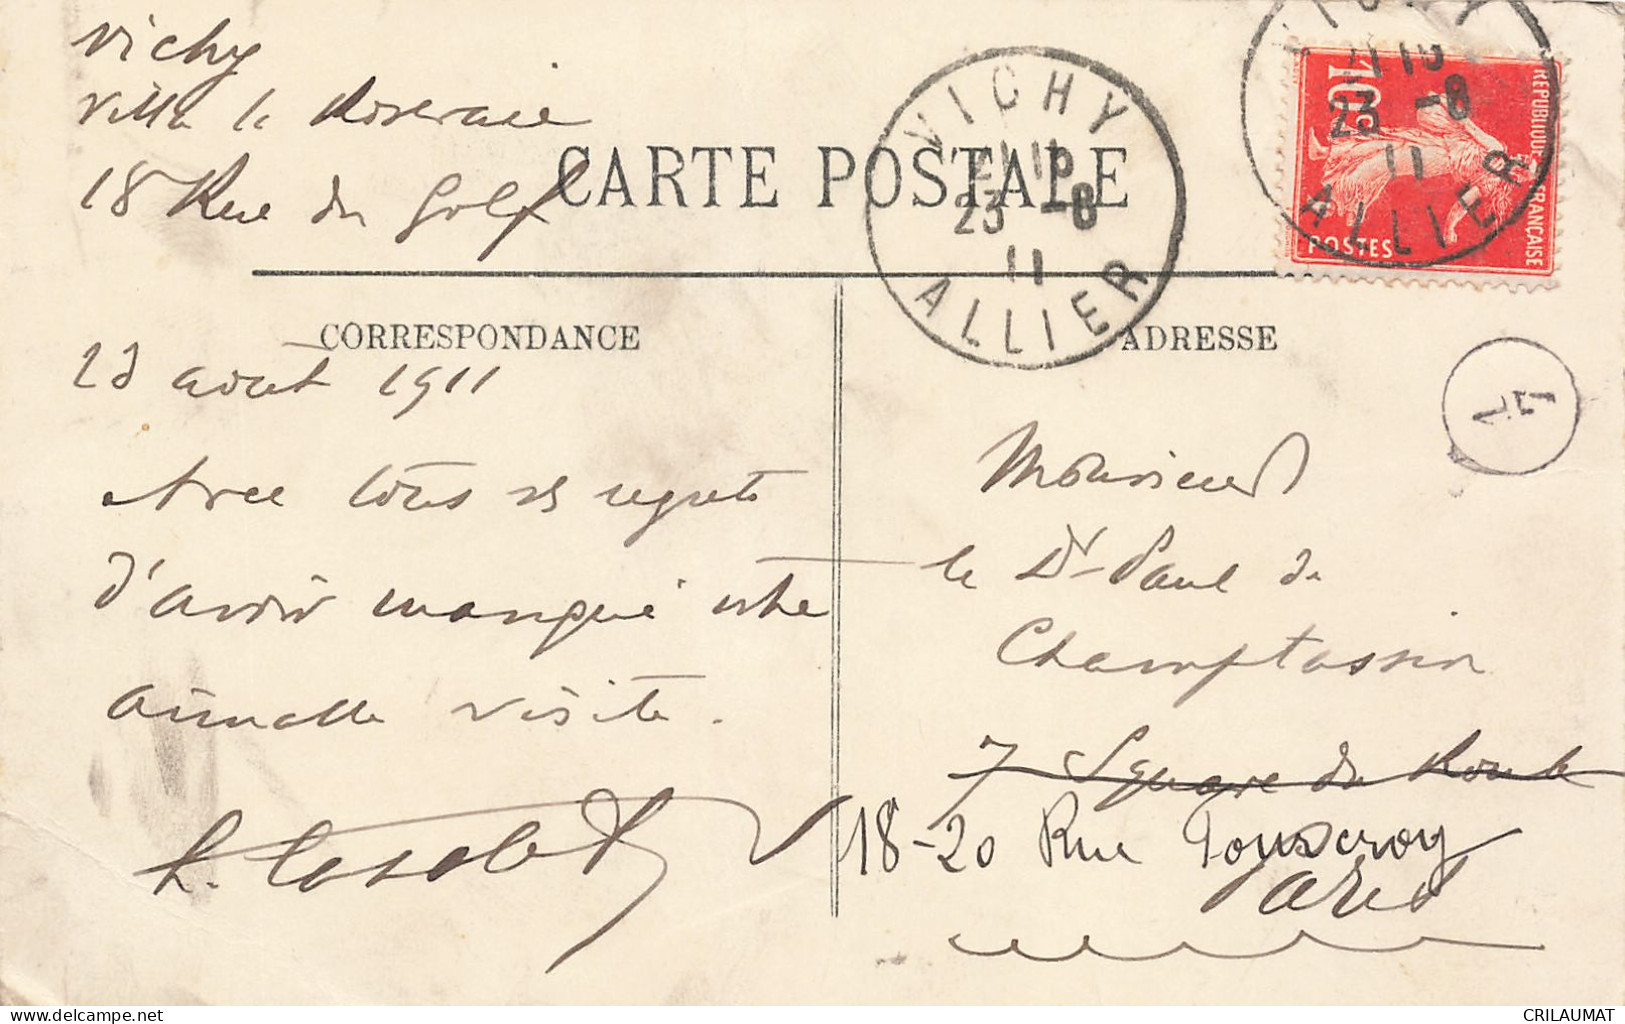 Vichy
Villa la Roseraie
18 Rue du Golf
CARTE POSTALE
VICHY
23 -8
11
ALLIER
VICHY
23 -8
11
ALLIER
10c
REPUBLIQUE FRANCAISE
POSTES
CORRESPONDANCE
23 août 1911
Avec tous ses regrets
d'avoir manqué votre
aimable visite.
ADRESSE
Monsieur
le Dr Paul de
Champtassin
7 Square du Roule
18-20 Rue
Paris
CRILAUMAT